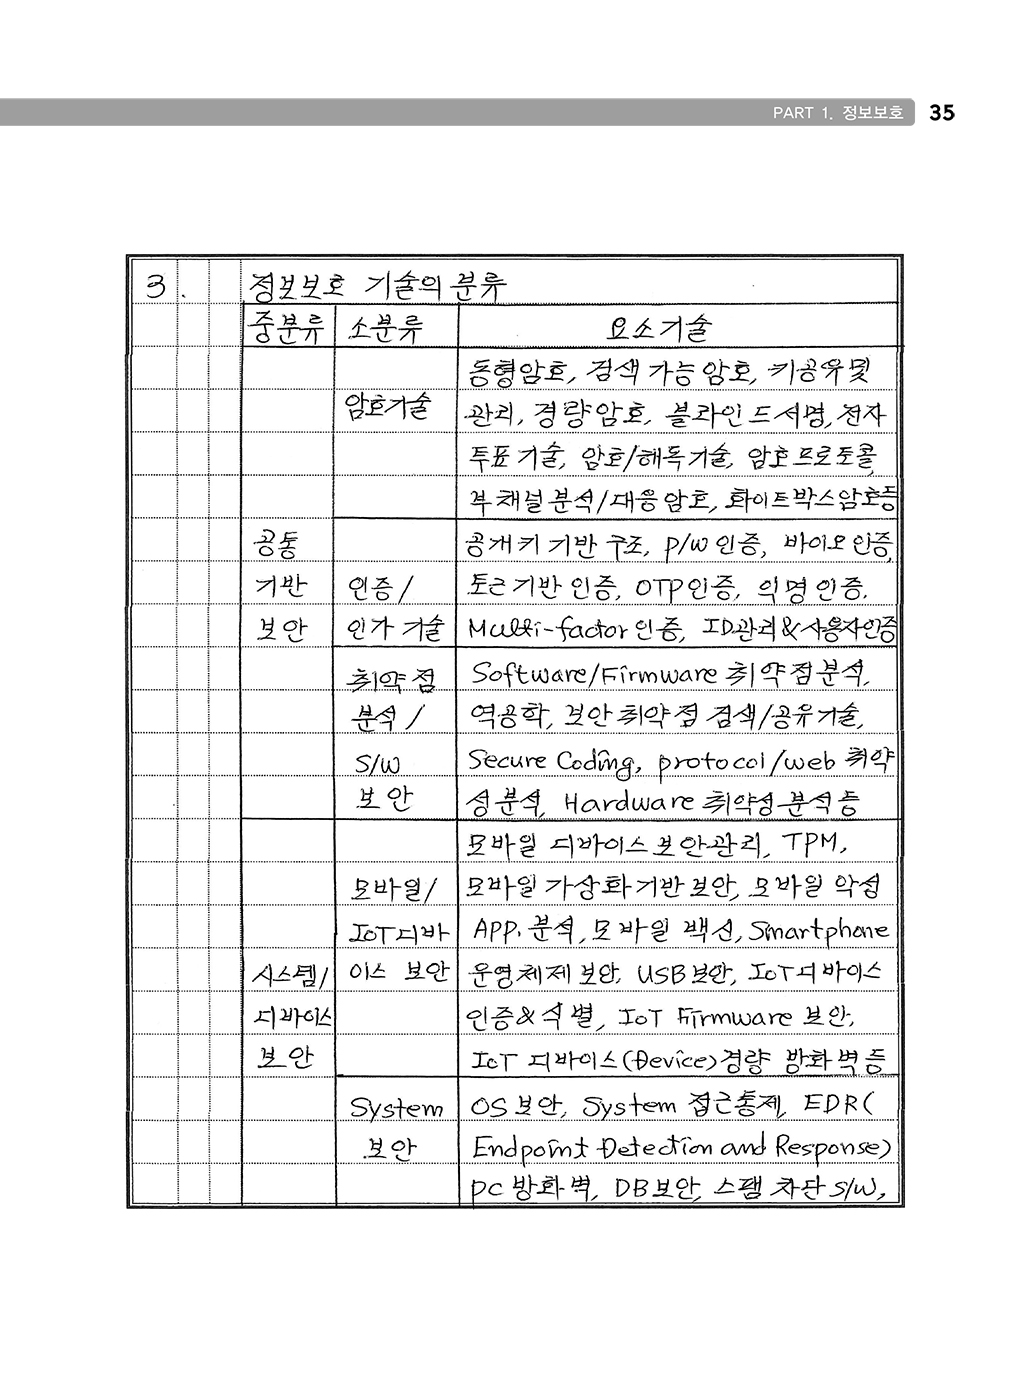 PART 1. 정보보호 35
3. 정보보호 기술의 분류
중분류 소분류 요소기술
동형암호, 검색 가능 암호, 키공유 및
암호기술 관리, 경량암호, 블라인드서명, 전자
투표 기술, 암호/해독기술, 암호프로토콜,
부채널분석/대응암호, 화이트박스암호등
공통 공개키 기반 구조, P/W 인증, 바이오인증,
기반 인증/ 토큰기반 인증, OTP인증, 익명인증,
보안 인가 기술 Multi-factor인증, ID관리&사용자인증
취약점 Software/Firmware 취약점분석,
분석/ 역공학, 보안취약점 검색/공유기술,
S/W Secure Coding, protocol/web 취약
보안 성분석, Hardware 취약성분석등
모바일 디바이스 보안관리, TPM,
모바일/ 모바일가상화기반보안, 모바일 악성
IoT디바 APP. 분석, 모바일 백신, Smartphone
시스템/ 이스 보안 운영체제 보안, USB보안, IoT디바이스
디바이스 인증&식별, IoT Firmware 보안,
보안 IoT 디바이스(Device)경량 방화벽등
System OS보안, System 접근통제, EDR(
보안 Endpoint Detection and Response)
PC방화벽, DB보안, 스팸차단S/W,